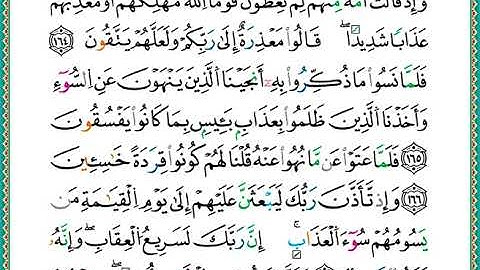 وَإِذْ قَالَتْ أُمَّةٌ مِّنْهُمْ لِمَ تَعِظُونَ قَوْمًا ٱللَّهُ مُهْلِكُهُمْ أَوْ مُعَذِّبُهُمْ
عَذَابًا شَدِيدًا ۖ قَالُوا۟ مَعْذِرَةً إِلَىٰ رَبِّكُمْ وَلَعَلَّهُمْ يَتَّقُونَ ١٦٤
فَلَمَّا نَسُوا۟ مَا ذُكِّرُوا۟ بِهِۦٓ أَنجَيْنَا ٱلَّذِينَ يَنْهَوْنَ عَنِ ٱلسُّوٓءِ
وَأَخَذْنَا ٱلَّذِينَ ظَلَمُوا۟ بِعَذَابٍۭ بَـِٔيسٍۭ بِمَا كَانُوا۟ يَفْسُقُونَ
١٦٥ فَلَمَّا عَتَوْا۟ عَن مَّا نُهُوا۟ عَنْهُ قُلْنَا لَهُمْ كُونُوا۟ قِرَدَةً خَـٰسِـِٔينَ
١٦٦ وَإِذْ تَأَذَّنَ رَبُّكَ لَيَبْعَثَنَّ عَلَيْهِمْ إِلَىٰ يَوْمِ ٱلْقِيَـٰمَةِ مَن
يَسُومُهُمْ سُوٓءَ ٱلْعَذَابِ ۗ إِنَّ رَبَّكَ لَسَرِيعُ ٱلْعِقَابِ ۖ وَإِنَّهُۥ